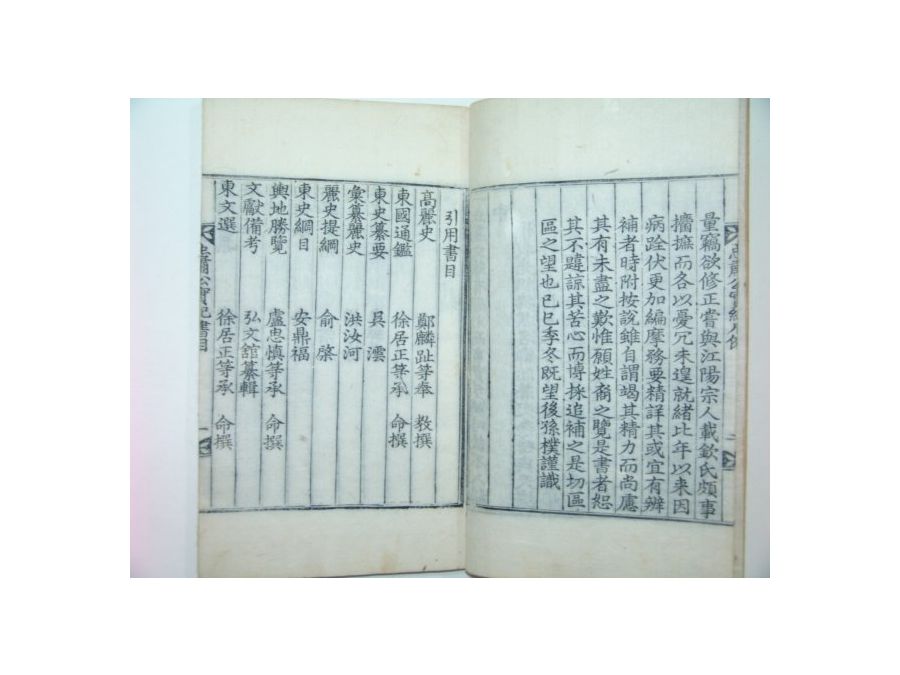 量竊欲修正嘗與江陽宗人載欽氏頗事
攟摭而各以憂冗未遑就緒比年以来因
病跧伏更加編摩務要精詳其或宜有辨
補者時附按說雖自謂竭其精力而尚應
其有未盡之歎惟願姓裔之覽是書者恕
其不韙諒其苦心而博採追補之是切區
區之望也已巳季冬既望後孫樸謹識
引用書目
高麗史 鄭麟趾等奉 敎撰
東國通鑑 徐居正等承 命撰
東史纂要 吳澐
彙纂麗史 洪汝河
麗史提綱 俞棨
東史綱目 安鼎福
輿地勝覽 盧忠慎等承 命撰
文獻備考 弘文舘纂輯
東文選 徐居正等承 命撰
忠肅公實紀書目 一